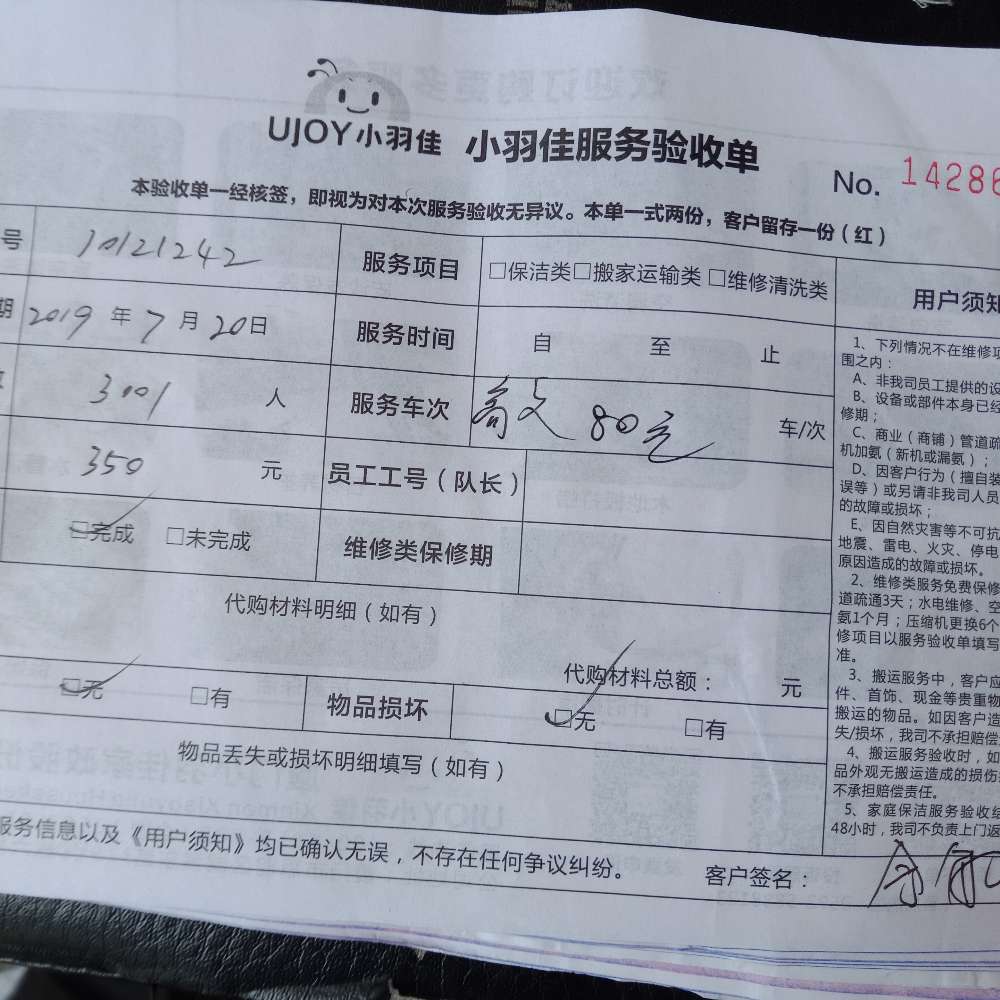 UJOY小羽佳 小羽佳服务验收单
No. 14286
本验收单一经核签，即视为对本次服务验收无异议。本单一式两份，客户留存一份（红）
号 10121242 服务项目 □保洁类□搬家运输类 □维修清洗类
期 2019 年 7 月 20 日 服务时间 自 至 止
人 服务车次 80元 车/次
350 元 员工工号（队长）
□完成 □未完成 维修类保修期
代购材料明细（如有）
代购材料总额： 元
□无 □有 物品损坏 □无 □有
物品丢失或损坏明细填写（如有）
服务信息以及《用户须知》均已确认无误，不存在任何争议纠纷。
客户签名：
用户须知
1、下列情况不在维修项
围之内：
A、非我司员工提供的设
B、设备或部件本身已经
修期；
C、商业（商铺）管道疏
机加氨（新机或漏氨）；
D、因客户行为（擅自装
误等）或另请非我司人员
的故障或损坏；
E、因自然灾害等不可抗
地震、雷电、火灾、停电
原因造成的故障或损坏。
2、维修类服务免费保修
道疏通3天；水电维修、空
氨1个月；压缩机更换6个
修项目以服务验收单填写
准。
3、搬运服务中，客户应
件、首饰、现金等贵重物
搬运的物品。如因客户造
失/损坏，我司不承担赔偿
4、搬运服务验收时，如
品外观无搬运造成的损伤
不承担赔偿责任。
5、家庭保洁服务验收结
48小时，我司不负责上门返